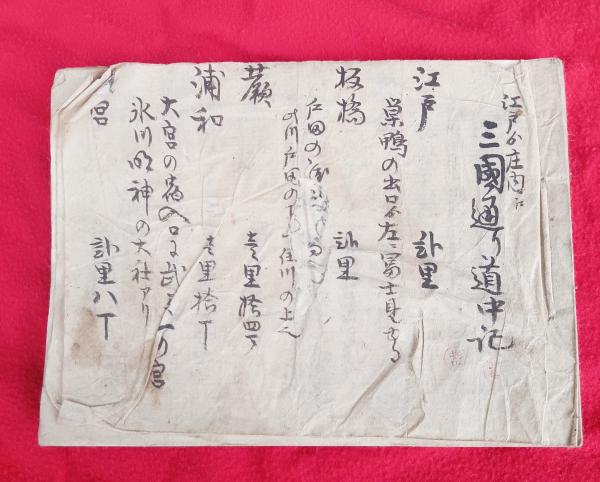 江戸ゟ庄内江
三國通り道中記
江戸 弐里
巣鴨の出口ゟ左ニ冨士見ゆる
板橋 弐里
戸田の渡
此川戸田の 川の上へ
蕨 壱里拾四丁
浦和 壱里拾丁
大宮の宿入口に武 一ノ宮
氷川明神の大社アリ
宮 弐里八丁